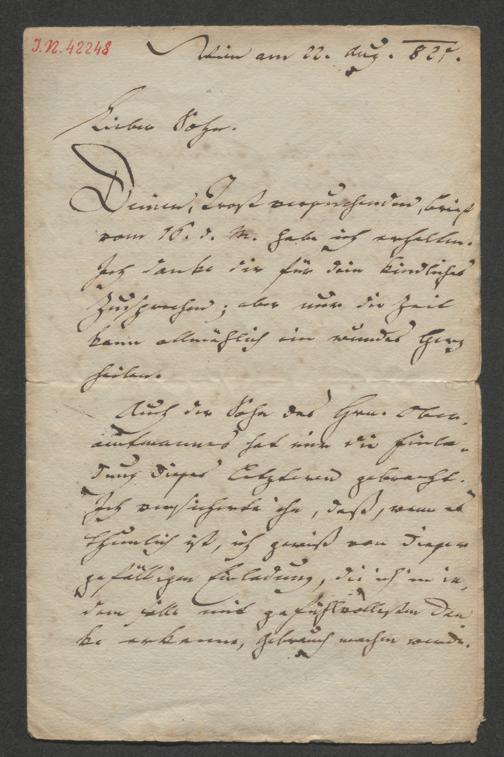 I.N. 42248
Wien am 22. Aug. 827.
Lieber Sohn.
Deinen, Trost versprechenden, Brief
vom 16. d. M. habe ich erhalten.
Ich danke dir für dein kindliches
Zusprechen; aber nur die Zeit
kann allmählich ein wundes Herz
heilen.
Auch der Sohn des Hrn. Ober-
amtmannes hat mir die Einla-
dung dieses Letzteren gebracht.
Ich versicherte ihn, daß, wenn es
thunlich ist, ich gewiß von dieser
gefälligen Einladung, die ich in je-
dem Falle mit gefühlvollesten Dan-
ke erkenne, Gebrauch machen werde.